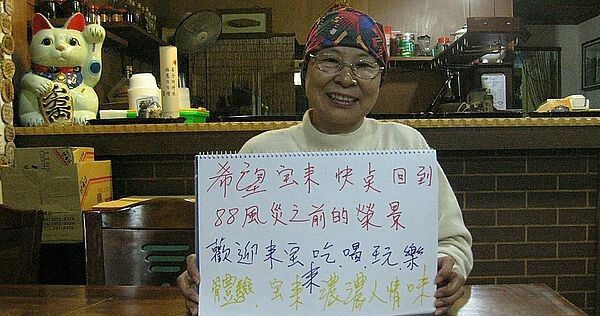 希望宝来快奌回到
88風災之前的榮景
歡迎来宝来吃、喝、玩、樂
體驗、宝来濃濃人情味